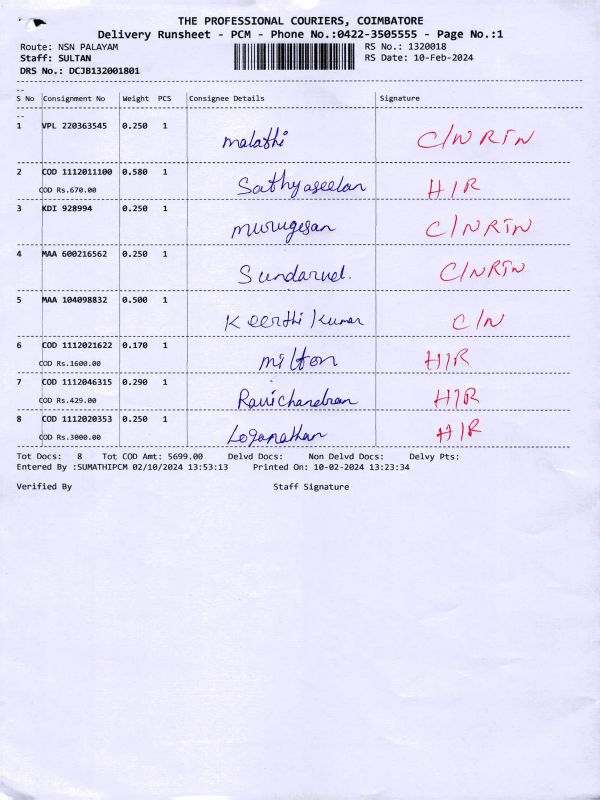 THE PROFESSIONAL COURIERS, COIMBATORE
Delivery Runsheet - PCM - Phone No.:0422-3505555 - Page No.:1
Route: NSN PALAYAM RS No.: 1320018
Staff: SULTAN RS Date: 10-Feb-2024
DRS No.: DCJB132001801
S No Consignment No Weight PCS Consignee Details Signature
1 VPL 220363545 0.250 1 malathi C/N RTN
2 COD 1112011100 0.580 1 Sathyaseelan H/R
COD Rs.670.00
3 KDI 928994 0.250 1 murugesan C/NRTN
4 MAA 600216562 0.250 1 C/NRTN
5 MAA 104098832 0.500 1 Keerthi Kumar C/N
6 COD 1112021622 0.170 1 milton H/R
COD Rs.1600.00
7 COD 1112046315 0.290 1 Ravichandran H/R
COD Rs.429.00
8 COD 1112020353 0.250 1 Loganathan H/R
COD Rs.3000.00
Tot Docs: 8 Tot COD Amt: 5699.00 Delvd Docs: Non Delvd Docs: Delvy Pts:
Entered By :SUMATHIPCM 02/10/2024 13:53:13 Printed On: 10-02-2024 13:23:34
Verified By Staff Signature